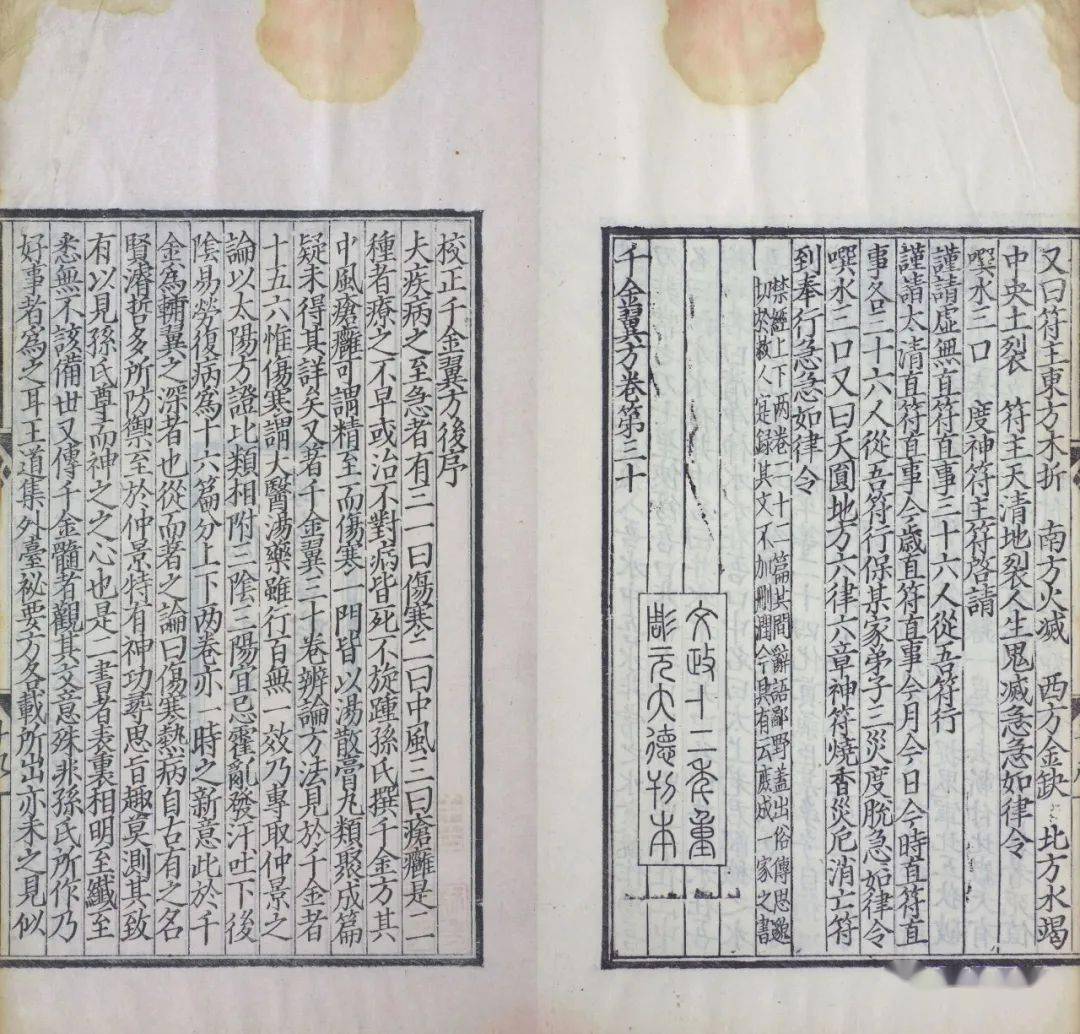 又曰符主東方木折　南方火滅　西方金缺　北方水竭
中央土裂　符主天清地裂人生鬼滅急急如律令
噀水三口　度神符主符啓請
謹請虛無直符直事三十六人從吾符行
謹請太清直符直事今歲直符直事今月今日今時直符直
事各三十六人從吾符行保某家弟子三災度脫急急如律令
噀水三口又曰天圓地方六律六章神符燒香災厄消亡符
到奉行急急如律令
禁經上下兩卷二十二篇其間辭語鄙野蓋出俗傳思邈
切於救人寔録其文不加刪潤今具有云庶成一家之書
文政十二年重
彫元大德刊本
千金翼方卷第三十
校正千金翼方後序
夫疾病之至急者有三一曰傷寒二曰中風三曰瘡癰是二
種者療之不早或治不對病皆死不旋踵孫氏撰千金方其
中風瘡癰可謂精至而傷寒一門皆以湯散膏丸類聚成篇
疑未得其詳矣又著千金翼三十卷辨論方法見於千金者
十五六惟傷寒謂大醫湯藥雖行百無一效乃專取仲景之
論以太陽方證比類相附三陰三陽宜忌霍亂發汗吐下後
陰易勞復病爲十六篇分上下两卷亦一時之新意此於千
金爲輔翼之深者也從而著之論曰傷寒熱病自古有之名
賢濬哲多所防禦至於仲景特有神功尋思旨趣莫測其致
有以見孫氏尊而神之之心也是二書者表裏相明至纖至
悉無不該備世又傳千金髓者觀其文意殊非孫氏所作乃
好事者爲之耳王道集外臺祕要方各載所出亦未之見似